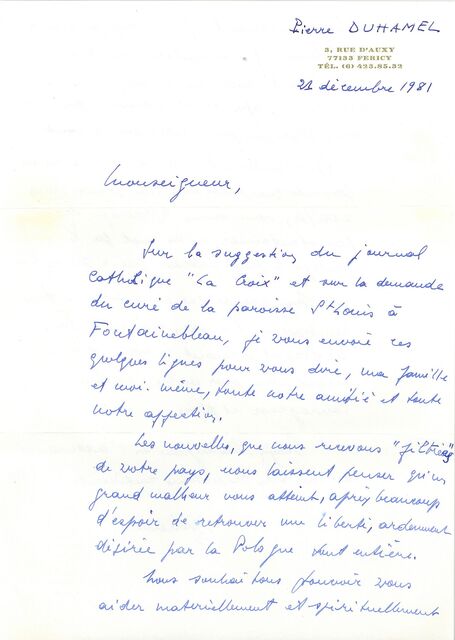 Pierre DUHAMEL
3, RUE D'AUXY
77133 FERICY
TÉL. (6) 423.85.32
21 décembre 1981
Monseigneur,
Sur la suggestion du journal
catholique "La Croix" et sur la demande
du curé de la paroisse St Louis à
Fontainebleau, je vous envoie ces
quelques lignes pour vous dire, ma famille
et moi-même, toute notre amitié et toute
notre affection.
Les nouvelles, que nous recevons "filtrées"
de votre pays, nous laissent penser qu'un
grand malheur vous atteint, après beaucoup
d'espoir de retrouver une liberté, ardemment
désirée par la Pologne tout entière.
Nous souhaitons pouvoir vous
aider matériellement et spirituellement